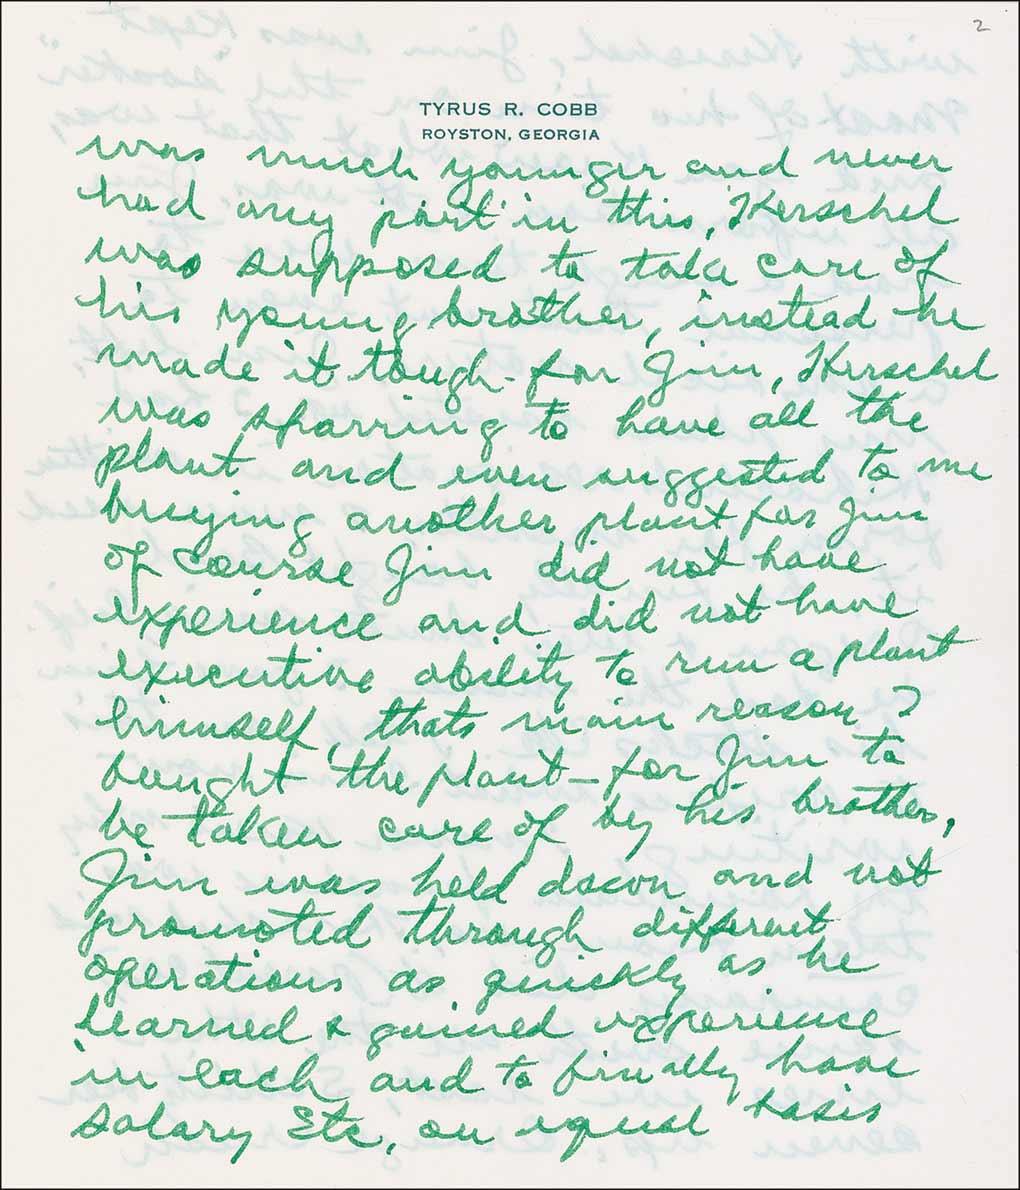 2
TYRUS R. COBB
ROYSTON, GEORGIA
was much younger and never
had any part in this, Herschel
was supposed to take care of
his young brother, instead he
made it tough - for Jim, Herschel
was sparring to have all the
plant and even suggested to me
buying another plant for Jim
of course Jim did not have
experience and did not have
executive ability to run a plant
himself, thats main reason I
bought the plant - for Jim to
be taken care of by his brother,
Jim was held down and not
promoted through different
operations as quickly as he
learned & gained experience
in each and to finally have
salary Etc, on equal basis